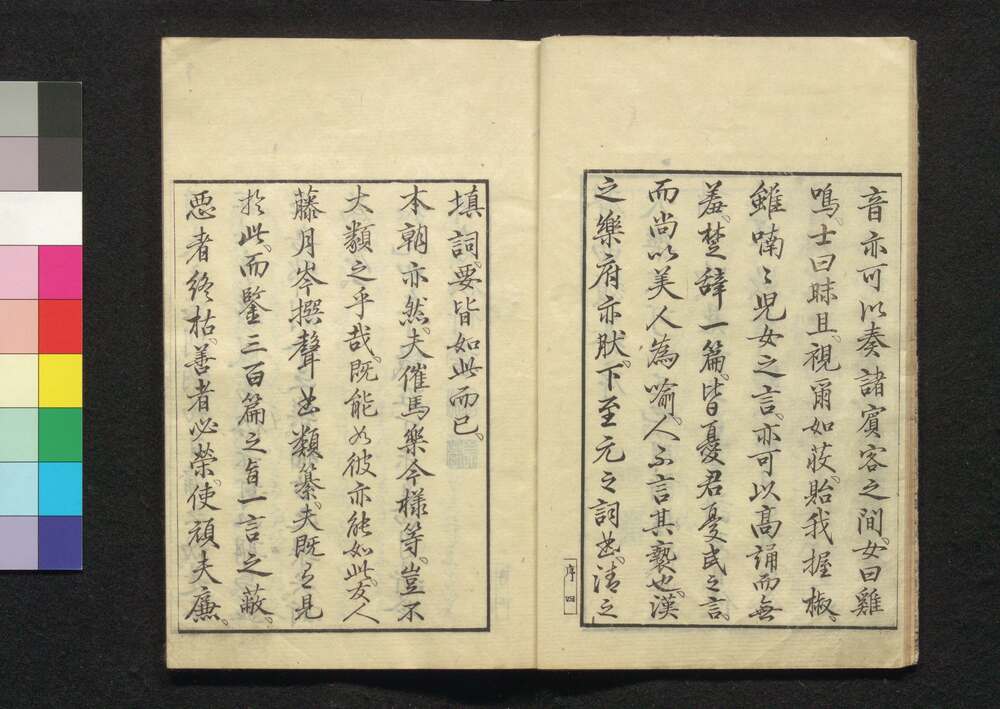 音亦可以奏諸賓客之間。女曰雞
鳴。士曰昧旦。視爾如荍。貽我握椒。
雖喃々兒女之言。亦可以高誦而無
羞。楚辞一篇。皆憂君憂民之言。
而尚以美人為喻。人不言其褻也。漢
之樂府亦肰。下至元之詞曲。清之
序四
填詞。要皆如此而已。
本朝亦然。夫催馬樂今様等。豈不
大類之乎哉。既能如彼亦能如此。友人
藤月岑撰聲曲類纂。夫既有見
於此。而鑒三百篇之旨一言之蔽。
惡者終枯。善者必榮。使頑夫廉。